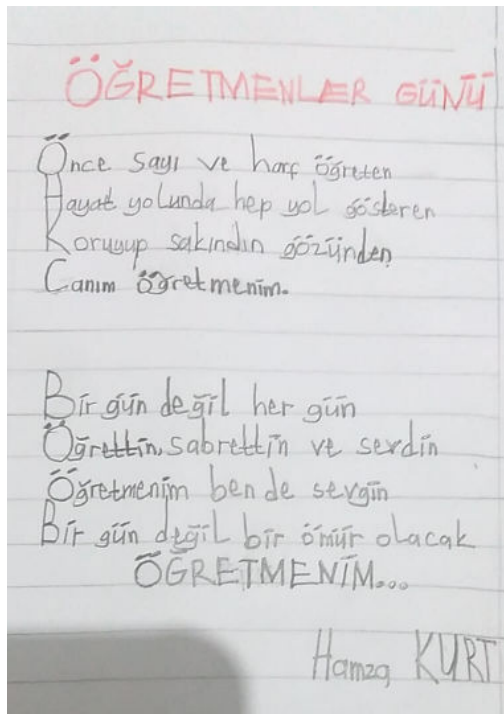 ÖĞRETMENLER GÜNÜ
Önce sayı ve harf öğreten
Hayat yolunda hep yol gösteren
Koruyup sakındın gözünden
Canım öğretmenim.
Bir gün değil her gün
Öğrettin, sabrettin ve serdin
Öğretmenim ben de sevgin
Bir gün değil bir ömür olacak
ÖĞRETMENİM...
Hamza KURT